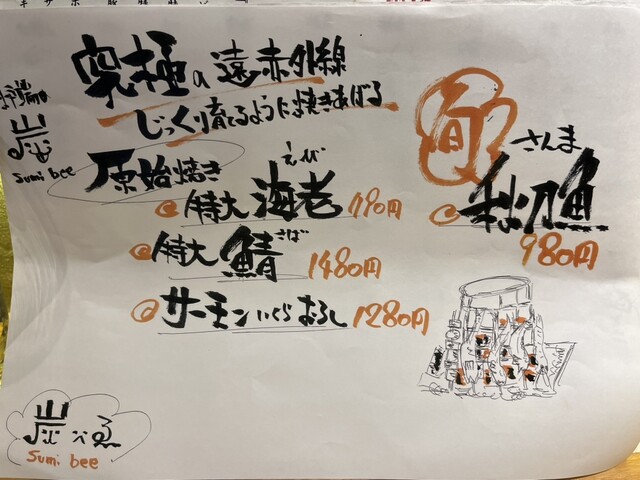 究極の遠赤外線
じっくり育てるように焼きあげる
炭
Sumi bee
原始焼き
えび
特大 海老 790円
さば
特大 鯖 1480円
サーモンいくらおろし 1280円
旬
さんま
秋刀魚
980円
炭
Sumi bee